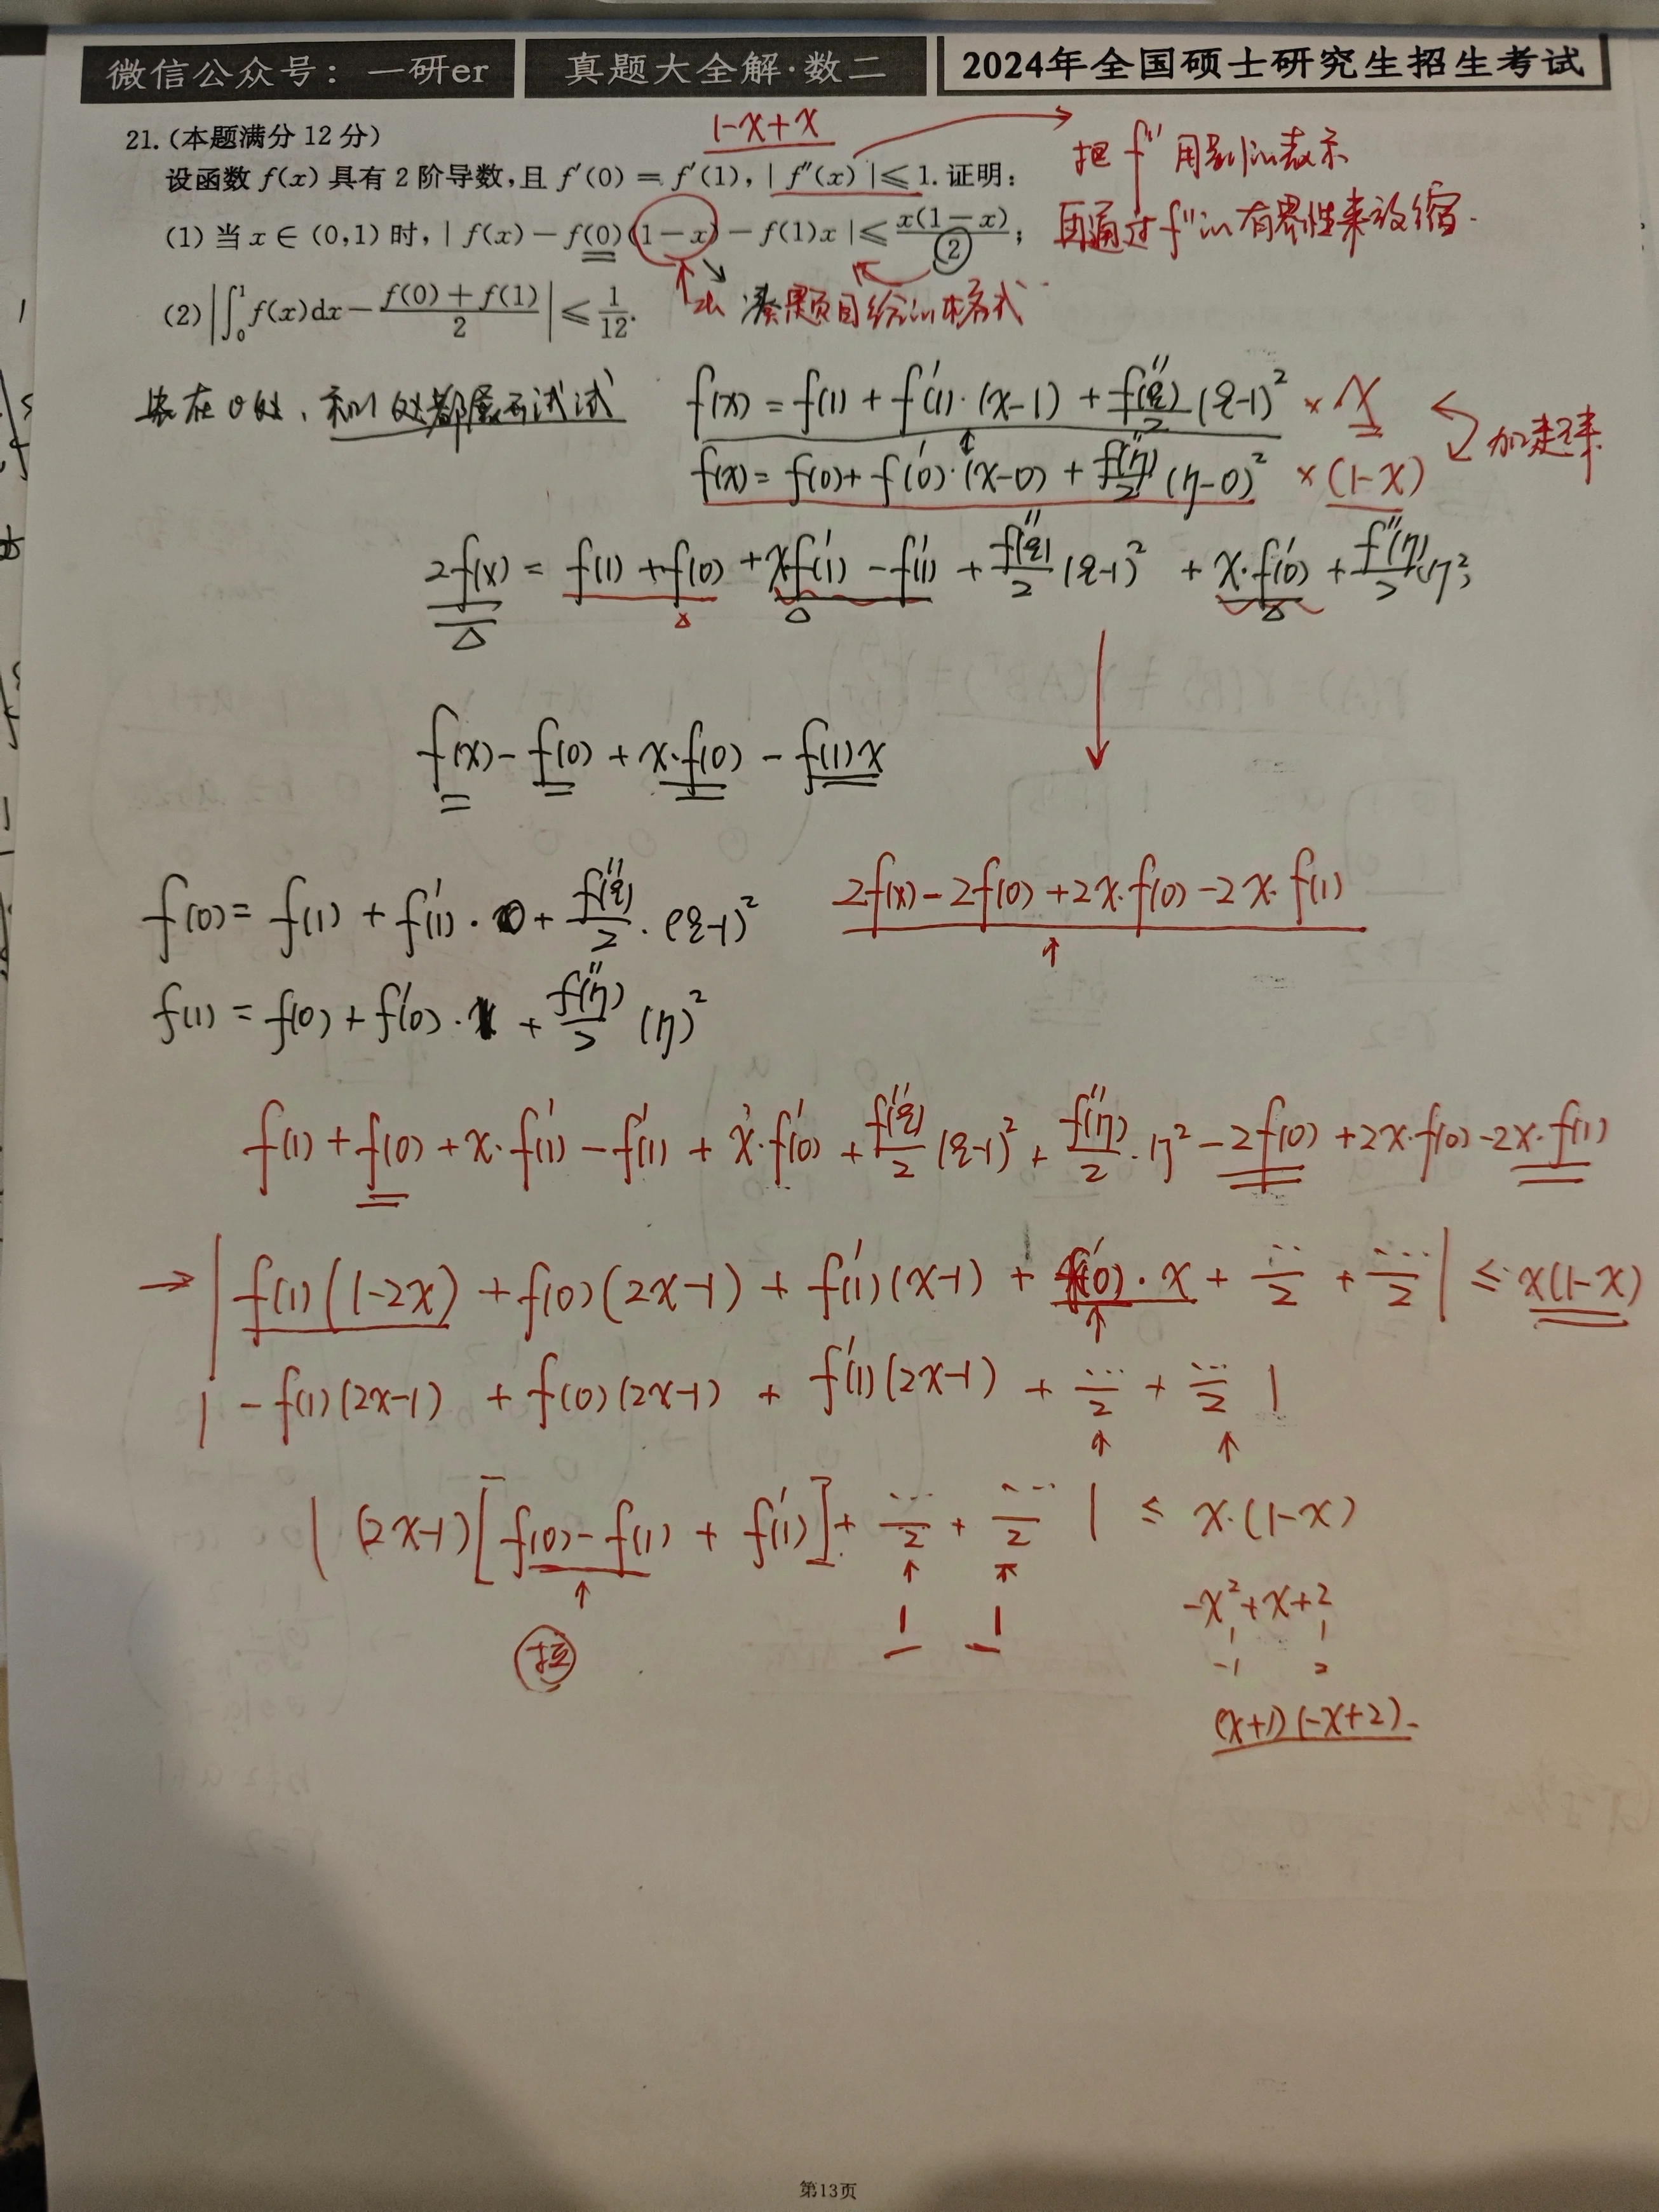 微信公众号：一研er 真题大全解·数二 2024年全国硕士研究生招生考试
21.(本题满分12分)
1-x+x
设函数 f(x) 具有 2 阶导数,且 f′(0) = f′(1), | f″(x) |≤ 1. 证明:
把 f″ 用别的表示
(1) 当 x ∈ (0,1) 时, | f(x) − f(0)(1 − x) − f(1)x |≤ x(1 − x)/2;
再通过 f″的有界性来放缩.
(2) |∫₀¹ f(x)dx − (f(0) + f(1))/2| ≤ 1/12.
凑题目给的格式
在0处、和1处都展开试试
f(x) = f(1) + f′(1)·(x-1) + f″(ξ)/2 (ξ-1)² × x
f(x) = f(0) + f′(0)·(x-0) + f″(η)/2 (η-0)² × (1-x)
加起来
2f(x) = f(1) + f(0) + xf′(1) - f′(1) + f″(ξ)/2 (ξ-1)² + x·f′(0) + f″(η)/2 η²
f(x) - f(0) + x·f(0) - f(1)x
2f(x) - 2f(0) + 2x·f(0) - 2x·f(1)
f(0) = f(1) + f′(1)·0 + f″(ξ)/2 ·(ξ-1)²
f(1) = f(0) + f′(0)· + f″(η)/2 (η)²
f(1) + f(0) + x·f′(1) - f′(1) + x·f′(0) + f″(ξ)/2 (ξ-1)² + f″(η)/2 ·η² - 2f(0) + 2x·f(0) - 2x·f(1)
→ | f(1)(1-2x) + f(0)(2x-1) + f′(1)(x-1) + f′(0)·x + …/2 + …/2 | ≤ x(1-x)
| -f(1)(2x-1) + f(0)(2x-1) + f′(1)(2x-1) + …/2 + …/2 |
| (2x-1)[f(0) - f(1) + f′(1)] + …/2 + …/2 | ≤ x·(1-x)
1 1
-x²+x+2
1 1
-1 2
拉
(x+1)(-x+2)
第13页